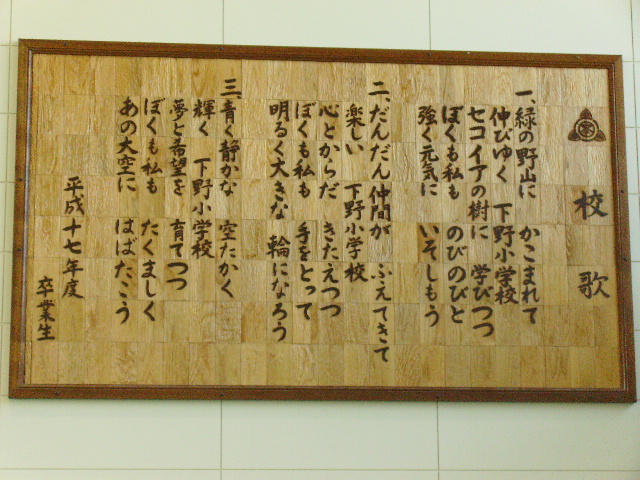 校歌
一、緑の野山に　かこまれて
伸びゆく　下野小学校
セコイアの樹に　学びつつ
ぼくも私も　のびのびと
強く元気に　いそしもう
二、だんだん仲間が　ふえてきて
楽しい　下野小学校
心とからだ　きたえつつ
ぼくも私も　手をとって
明るく大きな　輪になろう
三、青く静かな　空たかく
輝く　下野小学校
夢と希望を　育てつつ
ぼくも私も　たくましく
あの大空に　はばたこう
平成十七年度
卒業生